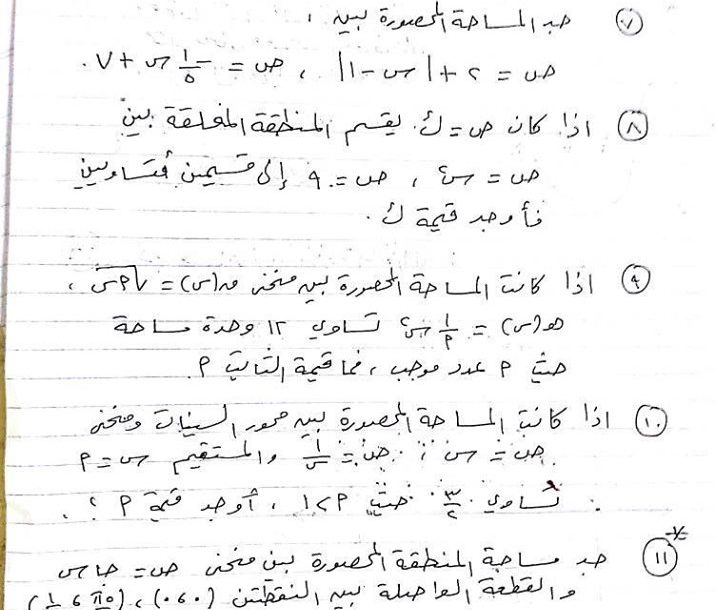 ٧ جد المساحة المحصورة بين :
ص = ٢ + |س - ١| ، ص = -١/٥ س + ٧ .
٨ اذا كان ص = ك يقسم المنطقة المغلقة بين
ص = س٢ ، ص = ٩ إلى قسمين متساويين
فأوجد قيمة ك .
٩ اذا كانت المساحة المحصورة بين منحنى ق(س) = √م س ،
هـ(س) = ١/م س٢ تساوي ١٢ وحدة مساحة
حيث م عدد موجب ، فما قيمة الثابت م .
١٠ اذا كانت المساحة المحصورة بين محور السينات ومنحنى
ص = س ، ص = ١/س والمستقيم س = م
تساوي ٣/٢ حيث م > ١ ، أوجد قيمة م ؟ .
١١ جد مساحة المنطقة المحصورة بين منحنى ص = جا س
والقطعة الواصلة بين النقطتين (٠،٠) ،